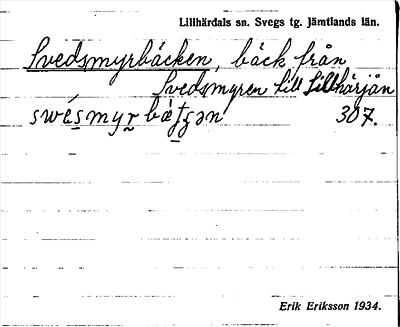 Lillhärdals sn. Svegs tg. Jämtlands län.
Svedsmyrbäcken, bäck från
Svedsmyren till Lillhärjån
307.
Erik Eriksson 1934.